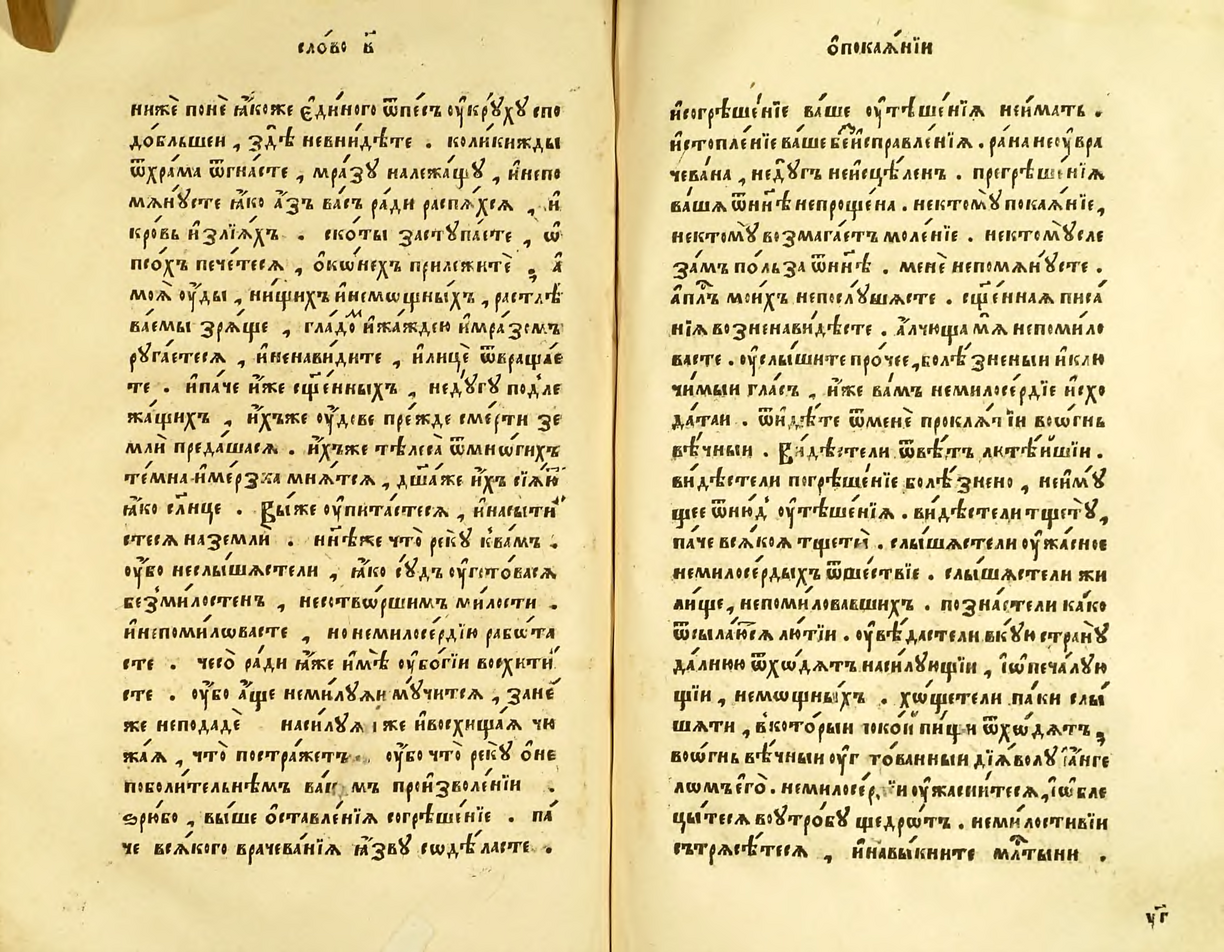 сло́во в҃
нижѐ понѐ ꙗ҆́коже є҆ди́ного ѿпе́съ оу҆кру́хꙋ спо
до́бльшеи , здѣ̀ невни́дѣте . коли́кижды
ѿхра́ма ѿгна́сте , мра́зꙋ належа́щꙋ , и҆непо
мѧнꙋ́сте ꙗ҆́ко а҆́зъ ва́съ ра́ди распѧ́хсѧ , и҆
кро́вь и҆злїѧ́хъ . ско́ты застꙋпа́сте , ѡ҆
псо́хъ пече́тесѧ , о҆ко́нехъ прилежитѐ , а҆
моѧ̀ оу҆́ды , ни́щихъ и҆немо́щныхъ , растлѣ
ва́емы зрѧ́ще , гла́до́м и҆жа́ждею и҆мра́зомъ
рꙋга́етесѧ , и҆ненави́дите , и҆лицѐ ѿвраща́е
те . и҆па́че и҆́же сщ҃е́нныхъ , недꙋ́гꙋ подле
жа́щихъ , и҆́хъже оу҆́дове пре́жде сме́рти зе
млѝ преда́шасѧ . и҆́хъже тѣлеса̀ ѿмно́гихъ
те́мна и҆ме́рзка мнѧ́тсѧ , дш҃аже и҆́хъ сїѧ́ю
ꙗ҆́ко сл҃нце . Вы́же оу҆пита́стесѧ , и҆насыти
стесѧ наземлѝ . нн҃ѣже что̀ рекꙋ̀ к̾ва́мъ .
оу҆́бо неслы́шѧстели , ꙗ҆́ко сꙋ́дъ оу҆гото́васѧ
безми́лостенъ , несотво́ршимъ ми́лости .
и҆непоми́ловасте , но немилосе́рдїю рабо́та
сте . чесо̀ ра́ди ꙗ҆́же и҆мѣ̀ оу҆бо́гїи восхити́
сте . оу҆́бо а҆́ще неми́лꙋѧи мꙋ́читсѧ , зане́
же неподадѐ наси́лꙋѧ же и҆восхища́ѧ чю
жа́ѧ , что̀ постра́жетъ . оу҆́бо что̀ рекꙋ̀ о҆не
поболи́тельнѣмъ ва́шемъ произволе́нїи .
ѕрю́бо , вы́ше ѡ҆ставле́нїѧ согрѣше́нїе . па́
че всѧ́кого врачева́нїѧ ꙗ҆́звꙋ содѣ́ласте .
о҆покаѧ́нїи
и҆согрѣше́нїе ва́ше оу҆тѣше́нїѧ неи҆́мать .
и҆стопле́нїе ва́ше беи҆справле́нїѧ . ра́на неоу҆вра
чева́на , недꙋ́гъ неи҆сцѣ́ленъ . прегрѣше́нїѧ
ва́шѧ ѿнн҃ѣ непроще́на . нектомꙋ̀ покаѧ́нїе ,
нектомꙋ̀ возмага́етъ моле́нїе . нектомꙋ̀ сле
за́мъ по́льза ѿнн҃ѣ . менѐ непомѧнꙋ́сте .
а҆пл҃ъ мои́хъ непослꙋ́шѧсте . сщ҃е́ннаѧ писа́
нїѧ возненави́дѣсте . а҆́лчюща мѧ̀ непоми́ло
васте . оу҆слы́шите про́чее , болѣ́зненыи и҆клю
чи́мыи гла́съ , и҆́же ва́мъ немилосе́рдїе и҆схо
да́таи . ѿи҆дѣ́те ѿменѐ проклѧ́тїи во ѻ҆гнь
вѣ́чныи . Ви́дѣстели ѿвѣ́тъ лютѣ́ишїи .
ви́дѣстели погрѣше́нїе болѣ́знено , неи҆мꙋ́
щее ѿню́д оу҆тѣше́нїѧ . ви́дѣстели тщетꙋ̀ ,
па́че всѧ́коѧ тщеты̀ . слы́шѧстели оу҆жа́сное
немилосе́рдыхъ ѿше́ствїе . слы́шѧстели жи
ли́ще , непоми́ловавшихъ . позна́стели ка́ко
ѿсыла́ютсѧ лю́тїи . оу҆вѣ́дастели вкꙋ́ю странꙋ̀
да́лнюю ѿхо́дѧтъ наси́лꙋющїи , и҆ѡ҆печа́лꙋю
щїи , немо́щныхъ . хо́щетели па́ки слы́
шѧти , в̾кото́рыи поко́и пи́щи ѿхо́дѧтъ ,
во ѻ҆гнь вѣ́чныи оу҆гото́ванныи дїѧ́волꙋ и҆а҆́нге
ломъ є҆го̀ . немилосе́рдїи оу҆жасни́тесѧ , и҆ѡ҆бле
цы́тесѧ во оу҆тро́бꙋ щедро́тъ . неми́лостивїи
сътрѧсѣ́тесѧ , и҆навы́кните мл҃тыни .
уг҃